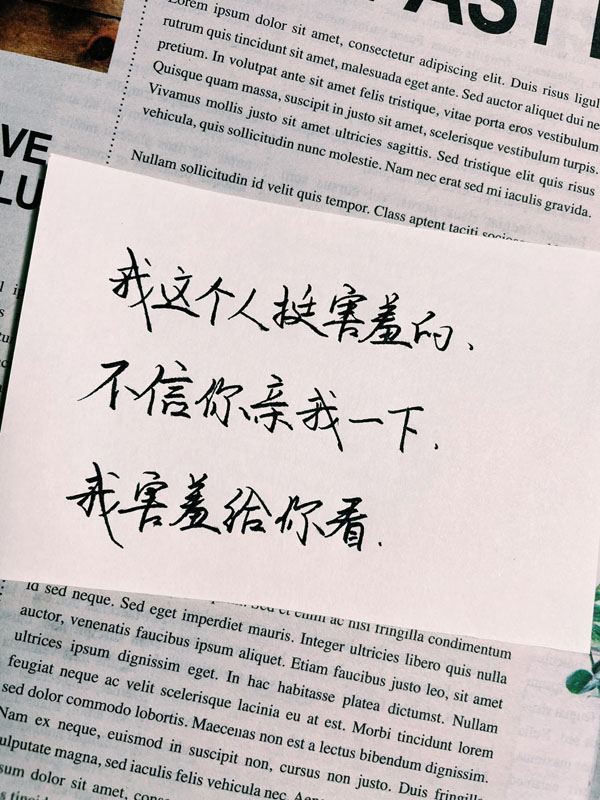 AST
Lorem ipsum dolor sit amet, consectetur adipiscing elit. Duis risus ligul
rutrum quis tincidunt sit amet, malesuada eget ante. Sed auctor aliquet dui ne
pretium. In volutpat ante sit amet felis tristique, vitae porta eros vestibulum
Quisque quam massa, suscipit in justo sit amet, scelerisque vestibulum turpis.
Vivamus mollis justo sit amet ultricies sagittis. Sed tristique elit quis risus
vehicula, quis sollicitudin nunc molestie. Nam nec erat sed mi iaculis gravida.
Nullam sollicitudin id velit quis tempor. Class aptent taciti
VE
LU
我这个人挺害羞的、
不信你亲我一下.
我害羞给你看.
id sed neque. Sed eget imperdiet mauris. Integer ultricies libero quis nulla
auctor, venenatis faucibus ipsum aliquet. Etiam faucibus justo leo, sit amet
ultrices ipsum dignissim eget. In hac habitasse platea dictumst. Nullam
feugiat neque ac velit scelerisque lacinia eu at est. Morbi tincidunt lorem
sed dolor commodo lobortis. Maecenas non est a lectus bibendum dignissim.
Nam ex neque, euismod in suscipit non, cursus non justo. Duis fringilla
vulputate magna, sed iaculis felis vehicula nec.
sum dolor sit amet,